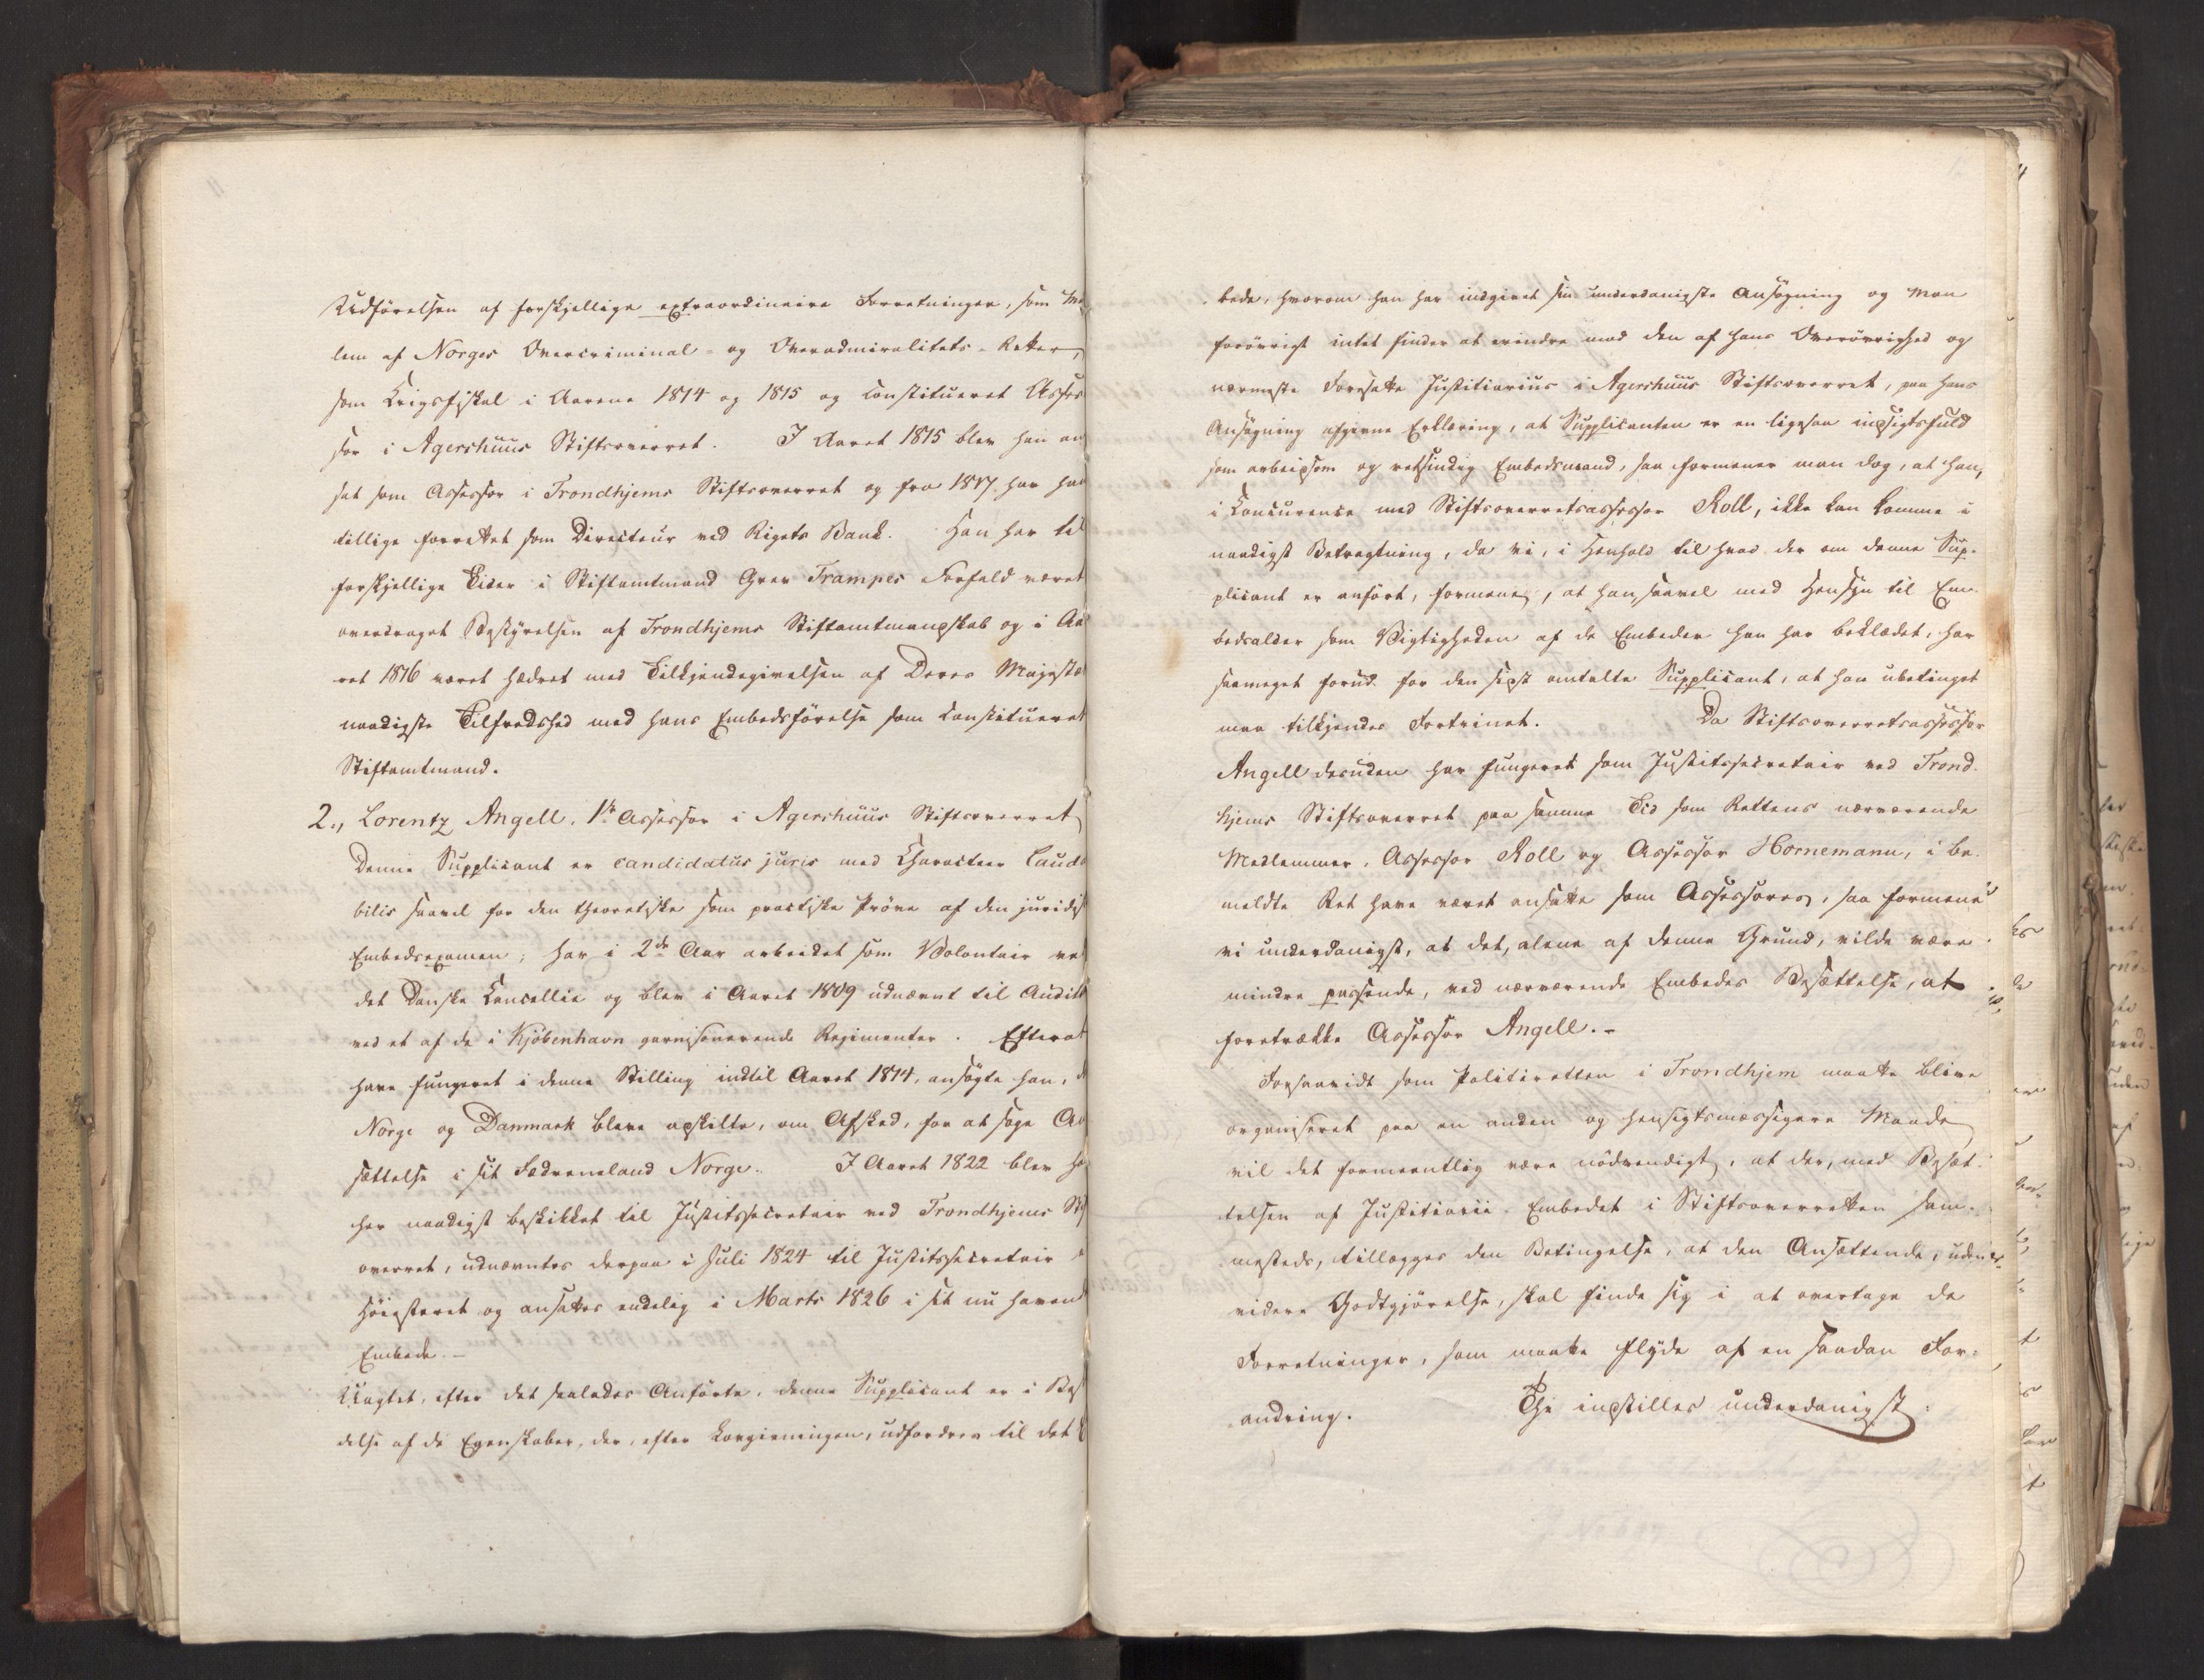 Udførelsen af forskjellige extraordinaire Forretninger, som Me
lem af Norges Overcriminal- og Overadmiralitets-Retter,
som Krigsfiskal i Aarene 1814 og 1815 og constitueret Asses
sor i Agershuus Stiftsoverret. I Aaret 1815 blev han an
sat som Assessor i Trondhjems Stiftsoverret og fra 1817 har han
tillige forrettet som Directeur ved Rigets Bank. Han har til
forskjellige Tider i Stiftamtmand Grev Trampes Forfald været
overdraget Bestyrelsen af Trondhjems Stiftamtmandskab og i Aa
ret 1816 været hædret med Tilkjendegivelsen af Deres Majestæ
naadigste Tilfredshed med hans Embedsførelse som constitueret
Stiftamtmand.
2., Lorentz Angell, 1ste Assessor i Agershuus Stiftsoverret
Denne Supplicant er candidatus juris med Characteer Lauda
bilis saavel for den theoretiske som practiske Prøve af den juridis
Embedsexamen; har i 2de Aar arbeidet som Volontair ve
det Danske Cancellie og blev i Aaret 1809 udnævnt til Audite
ved et af de i Kjøbenhavn garnisonerende Regimenter. Efterat
have fungeret i denne Stilling indtil Aaret 1814, ansøgte han, d
Norge og Danmark bleve adskilte, om Afsked, for at søge An
sættelse i sit Fædreneland Norge. I Aaret 1822 blev ha
her naadigst beskikket til Justitssecretair ved Trondhjems Sti
overret, udnævntes derpaa i Juli 1824 til Justitssecretair
Høiesteret og ansattes endelig i Marts 1826 i sit nu havend
Embede.-
Uagtet, efter det saaledes Anførte, denne Supplicant er i Besi
delse af de Egenskaber, der, efter Lovgivningen, udfordres til det
bede, hvorom han har indgivet sin underdanigste Ansøgning og man
forøvrigt intet finder at erindre mod den af hans Overøvrighed og
nærmeste Foresatte Justitiarius i Agershuus Stiftsoverret, paa hans
Ansøgning afgivne Erklæring, at Supplicanten er en ligesaa indsigtsfuld
som arbeidsom og retsindig Embedsmand, saa formener man dog, at han,
i Concurence med Stiftsoverretsassessor Roll, ikke kan komme i
naadigst Betragtning, da vi, i Henhold til hvad der om denne Sup-
plicant er anført, formene, at han, saavel med Hensyn til Em-
bedsalder som Vigtigheden af de Embeder han har beklædet, har
saameget forud for den sidst omtalte Supplicant, at han ubetinget
maa tilkjendes Fortrinet. Da Stiftsoverretsassessor
Angell desuden har fungeret som Justitssecretair ved Trond-
hjems Stiftsoverret paa samme Tid som Rettens nærværende
Medlemmer, Assessor Roll og Assessor Hornemann, i be-
meldte Ret have været ansatte som Assessores, saa formene
vi underdanigst, at det, alene af denne Grund, vilde være
mindre passende, ved nærværende Embedes Besættelse, at
foretrække Assessor Angell.-
Forsaavidt som Politiretten i Trondhjem maatte blive
organiseret paa en anden og hensigtsmæssigere Maade
vil det formeentlig være nødvendigt, at der, med Besæt-
telsen af Justitiarii-Embedet i Stiftsoverretten sam-
mesteds, tillægges den Betingelse, at den Ansættende, uden
videre Godtgjørelse, skal finde sig i at overtage de
Forretninger, som maatte flyde af en saadan For-
andring. Thi indstilles underdanigst: